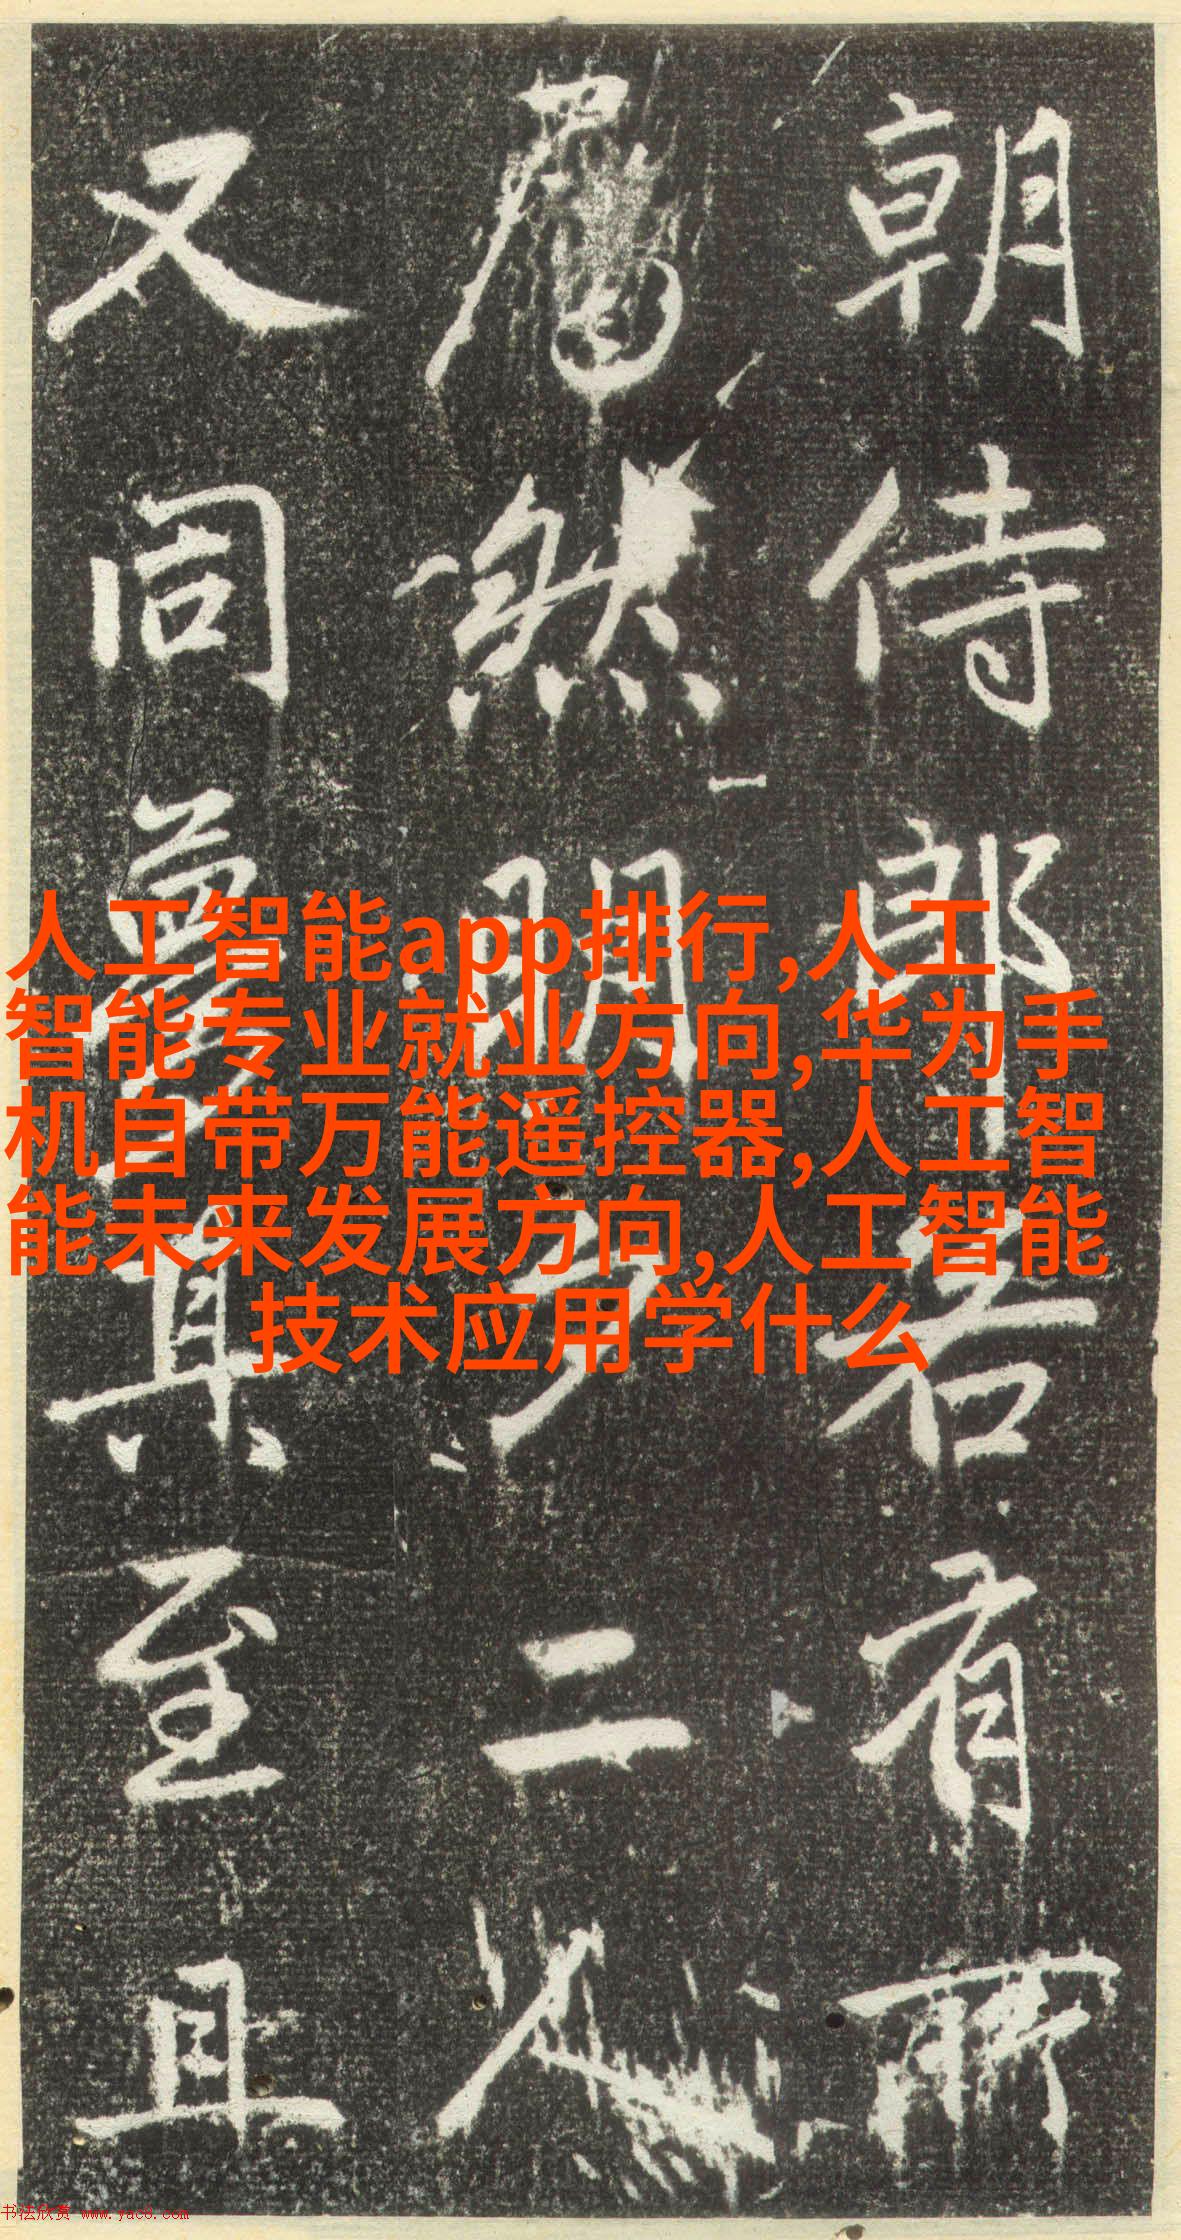 朝侍郎若有所
為然明
二人
又同夢其至且
人工智能app排行,人工
智能专业就业方向,华为手
机自带万能遥控器,人工智
能未来发展方向,人工智能
技术应用学什么
书法欣赏 www.yac8.com